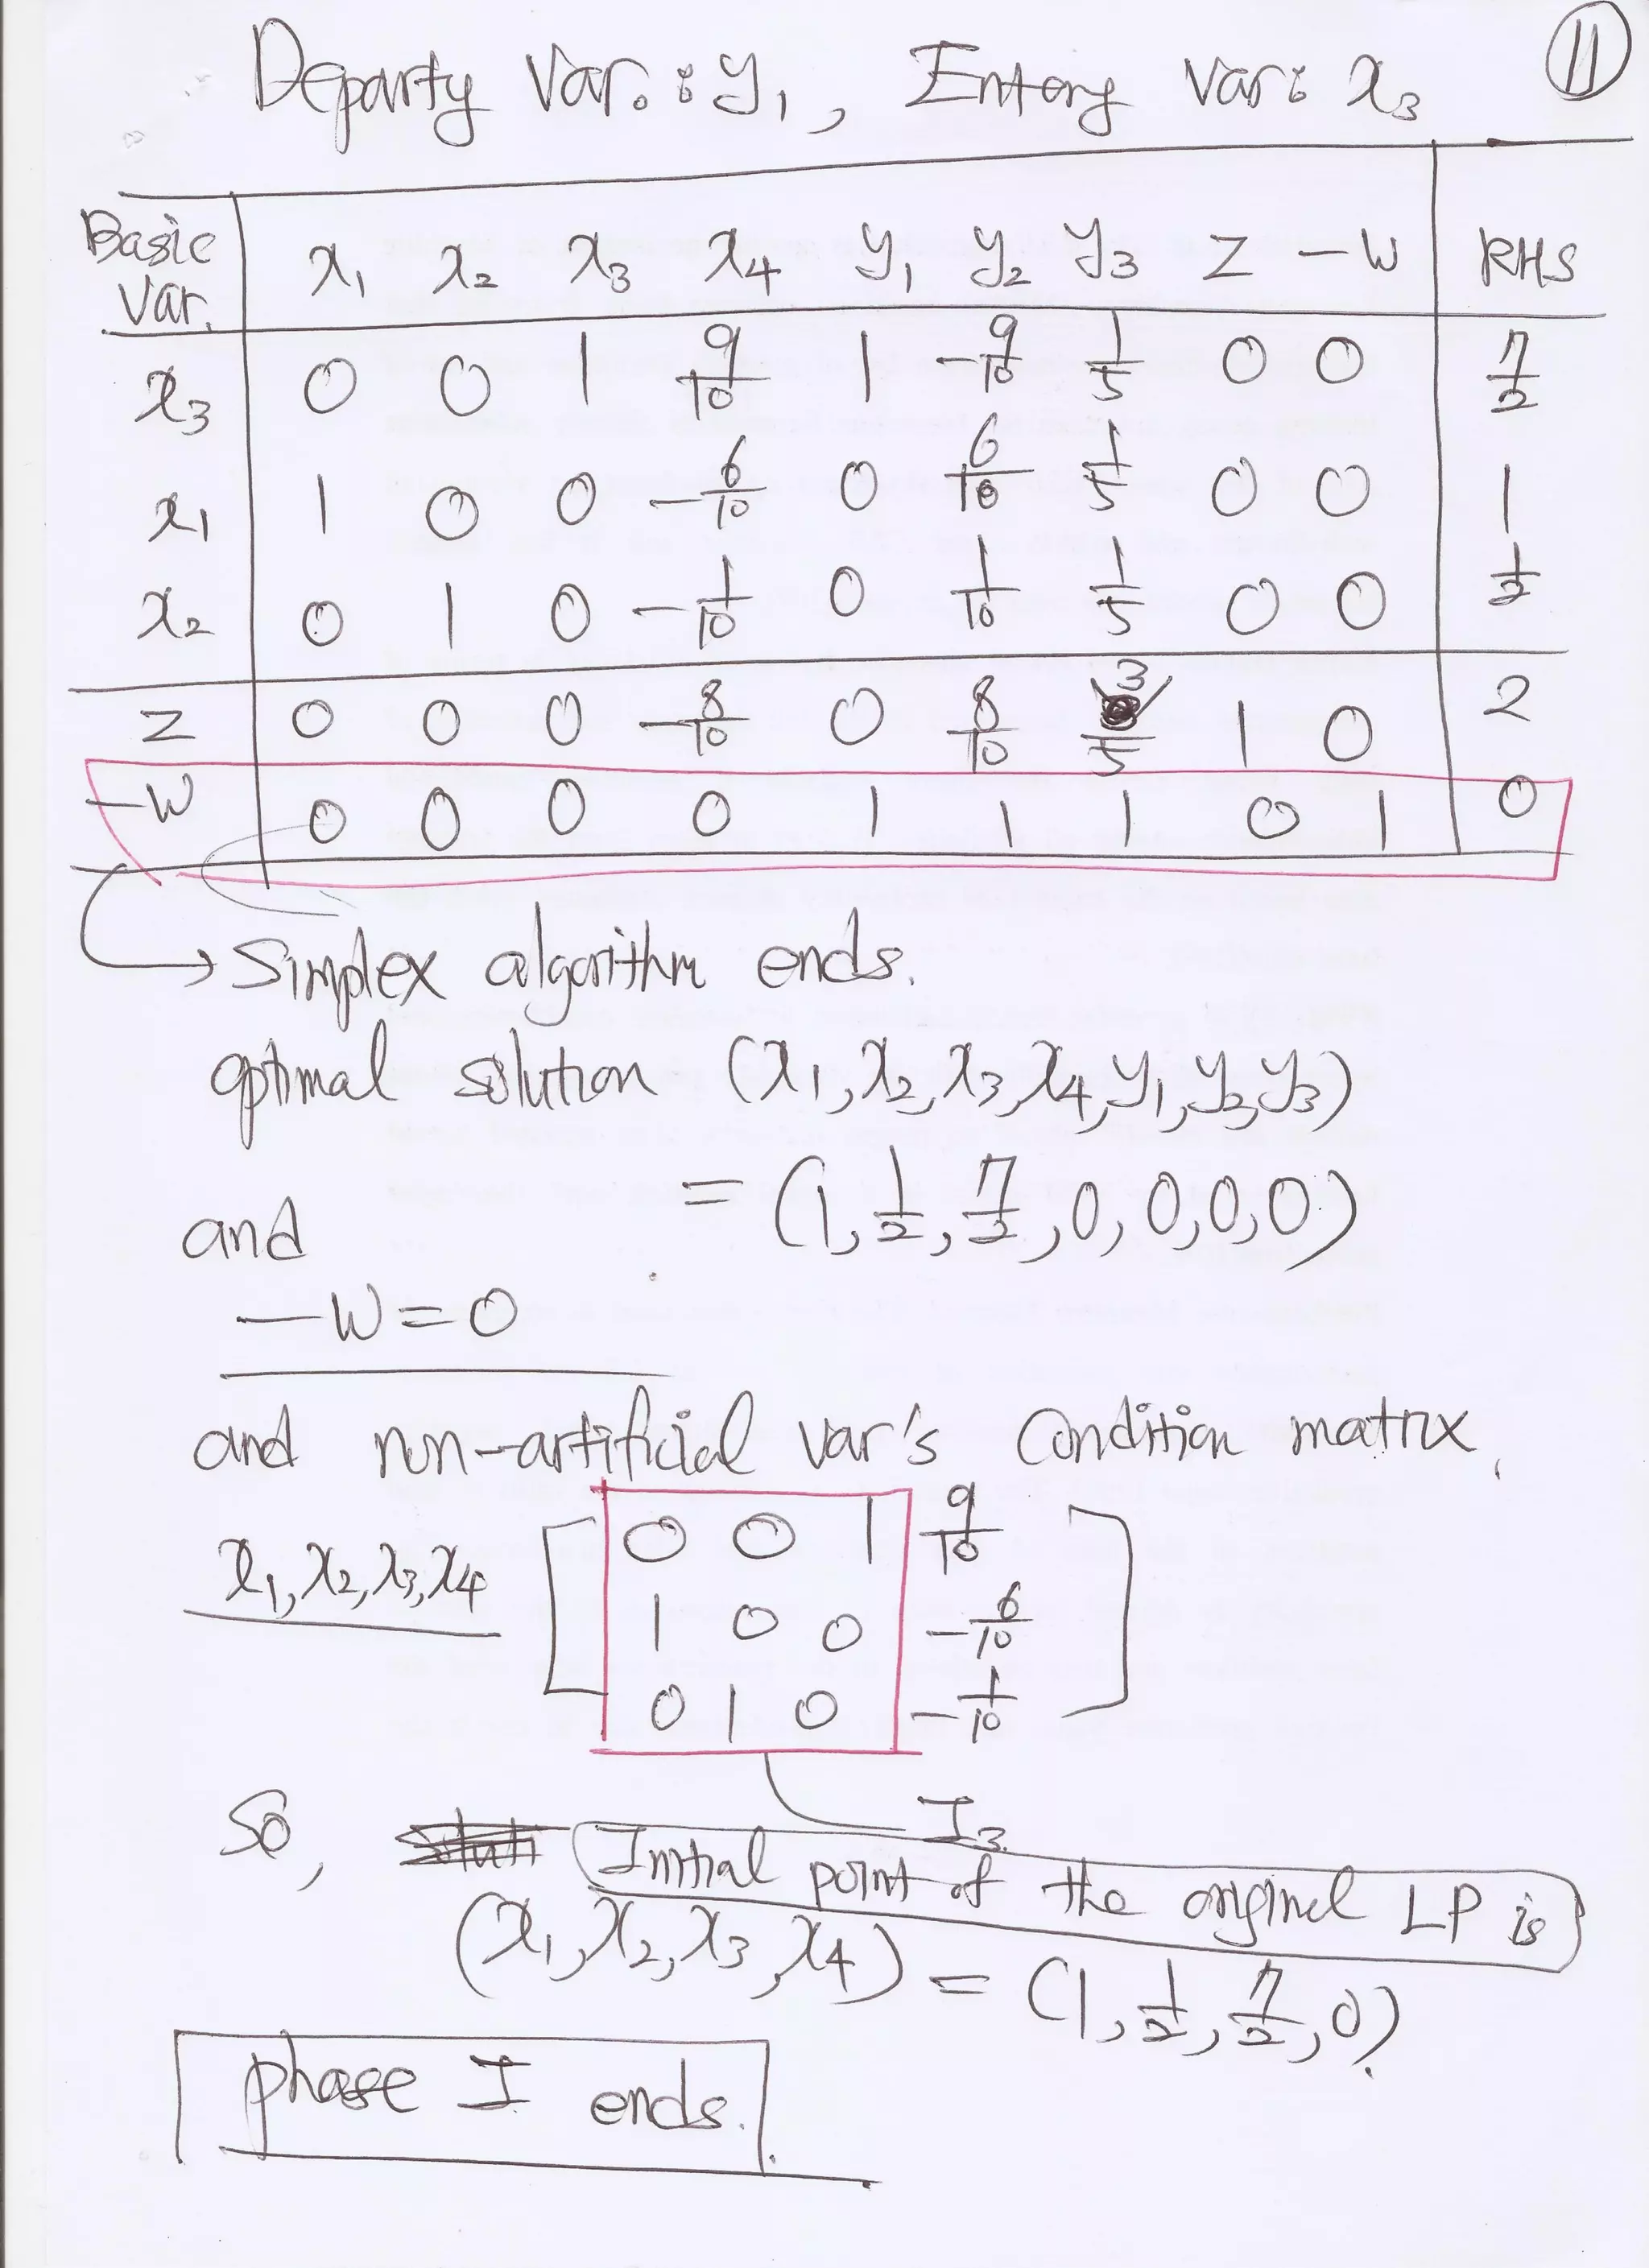 Departy Var. : y₁, Enterg Var: x₃ ⑪
Basic Var. x₁ x₂ x₃ x₄ y₁ y₂ y₃ Z -W RHS
x₃ 0 0 1 9/10 1 -9/10 1/5 0 0 7/2
x₁ 1 0 0 -6/10 0 6/10 1/5 0 0 1
x₂ 0 1 0 -1/10 0 1/10 1/5 0 0 1/2
Z 0 0 0 -8/10 0 8/10 3/5 1 0 2
-W 0 0 0 0 1 1 1 0 1 0
→ Simplex algorithm ends.
optimal solution (x₁, x₂, x₃, x₄, y₁, y₂, y₃)
= (1, 1/2, 7/2, 0, 0, 0, 0)
and
-W = 0
and non-artificial var's Condition matrix.
0 0 1 9/10
x₁, x₂, x₃, x₄
1 0 0 -6/10
0 1 0 -1/10
I₃
So, Initial point of the original LP is
(x₁, x₂, x₃, x₄) = (1, 1/2, 7/2, 0).
phase I ends.